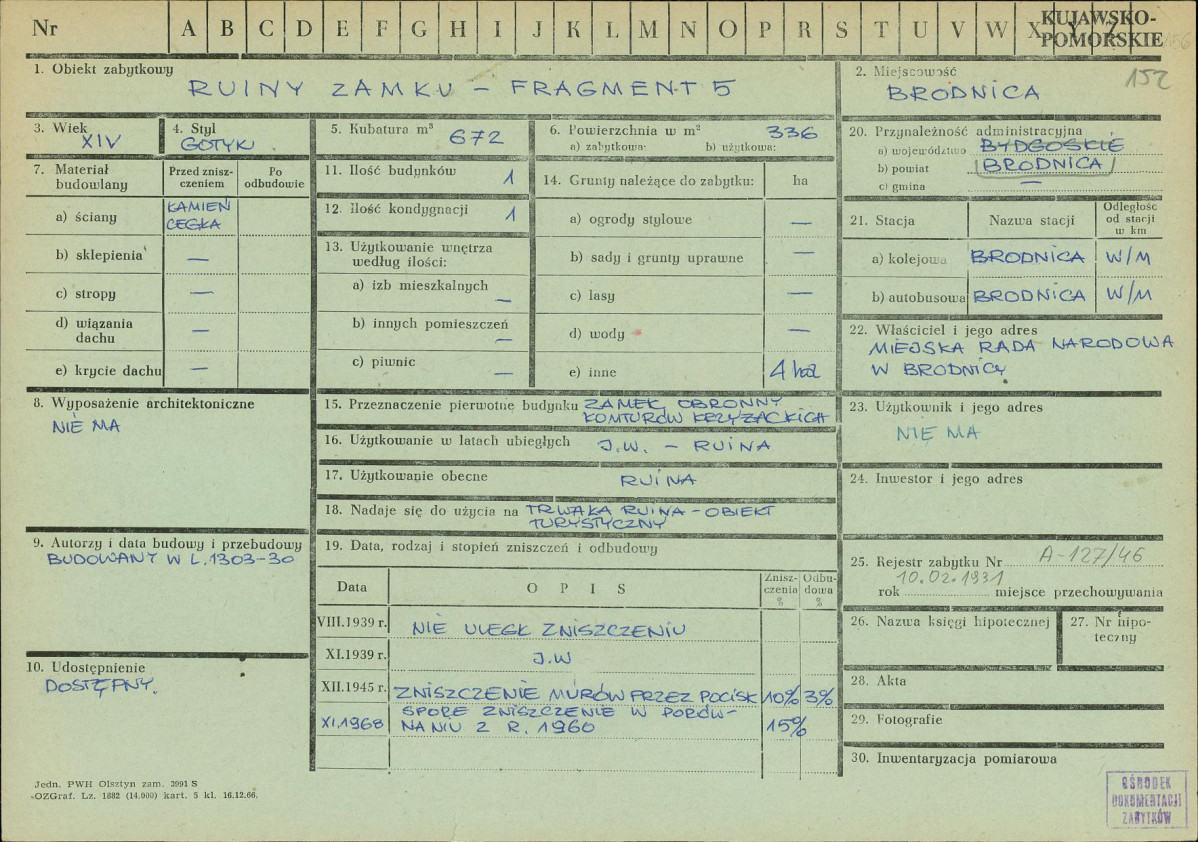 Nr A B C D E F G H I J K L M N O P R S T U V W X Y Z
KUJAWSKO-
POMORSKIE
1. Obiekt zabytkowy
RUINY ZAMKU – FRAGMENT 5
2. Miejscowość
152
BRODNICA
3. Wiek
XIV
4. Styl
GOTYK
5. Kubatura m³ 672
6. Powierzchnia w m² 336
a) zabytkowa: b) użytkowa:
7. Materiał
budowlany
Przed znisz-
czeniem
Po
odbudowie
a) ściany
KAMIEŃ
CEGŁA
b) sklepienia —
c) stropy —
d) wiązania
dachu —
e) krycie dachu —
8. Wyposażenie architektoniczne
NIE MA
9. Autorzy i data budowy i przebudowy
BUDOWANY W L. 1303-30
10. Udostępnienie
DOSTĘPNY.
11. Ilość budynków 1
12. Ilość kondygnacji 1
13. Użytkowanie wnętrza
według ilości:
a) izb mieszkalnych —
b) innych pomieszczeń —
c) piwnic —
14. Grunty należące do zabytku: ha
a) ogrody stylowe —
b) sady i grunty uprawne —
c) lasy —
d) wody —
e) inne 4 ha
15. Przeznaczenie pierwotne budynku ZAMEK OBRONNY
KOMTURÓW KRZYŻACKICH
16. Użytkowanie w latach ubiegłych J.W. – RUINA
17. Użytkowanie obecne RUINA
18. Nadaje się do użycia na TRWAŁA RUINA – OBIEKT
TURYSTYCZNY
19. Data, rodzaj i stopień zniszczeń i odbudowy
Data OPIS
Znisz-
czenia
%
Odbu-
dowa
%
VIII.1939 r. NIE ULEGŁ ZNISZCZENIU
XI.1939 r. J.W
XII.1945 r. ZNISZCZENIE MURÓW PRZEZ POCISK 10% 3%
XI.1968 SPORE ZNISZCZENIE W PORÓW-
NANIU Z R. 1960 15%
20. Przynależność administracyjna
a) województwo BYDGOSKIE
b) powiat BRODNICA
c) gmina —
21. Stacja Nazwa stacji
Odległość
od stacji
w km
a) kolejowa BRODNICA W/M
b) autobusowa BRODNICA W/M
22. Właściciel i jego adres
MIEJSKA RADA NARODOWA
W BRODNICY
23. Użytkownik i jego adres
NIE MA
24. Inwestor i jego adres
25. Rejestr zabytku Nr A-127/46
10.02.1931
rok miejsce przechowywania
26. Nazwa księgi hipotecznej
27. Nr hipo-
teczny
28. Akta
29. Fotografie
30. Inwentaryzacja pomiarowa
Jedn. PWH Olsztyn zam. 3991 S
OZGraf. Lz. 1882 (14.000) kart. 5 kl. 16.12.66.
OŚRODEK
DOKUMENTACJI
ZABYTKÓW